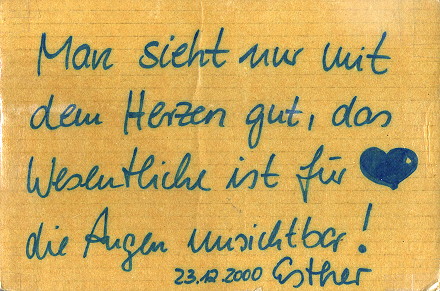 Man sieht nur mit
dem Herzen gut, das
Wesentliche ist für
die Augen unsichtbar!
23.12.2000 Esther